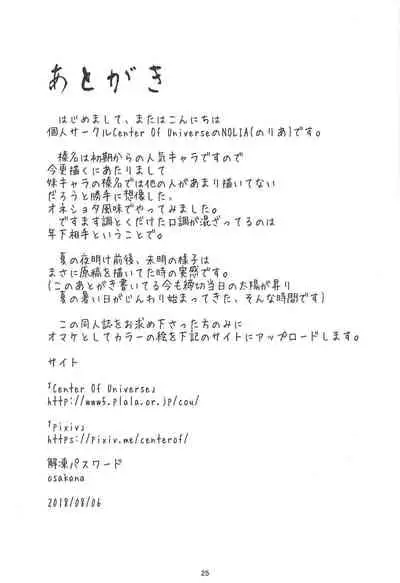 あとがき
はじめまして、またはこんにちは
個人サークルCenter Of UniverseのNOLIA(のりあ)です。
榛名は初期からの人気キャラですので
今更描くにあたりまして
妹キャラの榛名では他の人があまり描いてない
だろうと勝手に想像した。
オネショタ風味でやってみました。
ですます調とくだけた口調が混ざってるのは
年下相手ということで。
夏の夜明け前後、未明の様子は
まさに原稿を描いてた時の実感です。
(このあとがき書いてる今も締切当日の太陽が昇り
夏の暑い日がじんわり始まってきた、そんな時間です)
この同人誌をお求め下さった方のみに
オマケとしてカラーの絵を下記のサイトにアップロードします。
サイト
『Center Of Universe』
http://www5.plala.or.jp/cou/
『pixiv』
https://pixiv.me/centerof/
解凍パスワード
osakana
2018/08/06
25